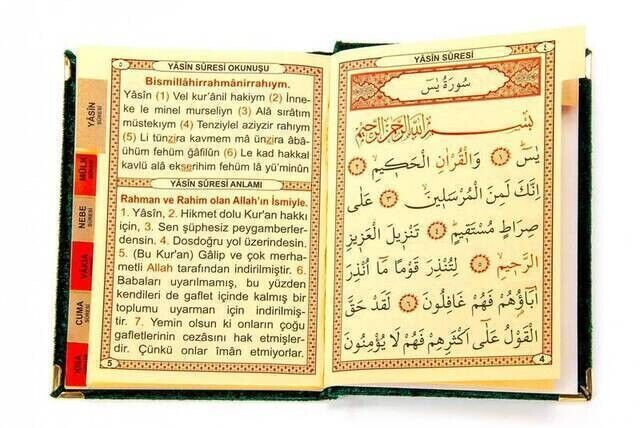 YÂSÎN SÛRESİ
٤
سُورَةُ يٰسٓ
بِسْمِ اللّٰهِ الرَّحْمٰنِ الرَّحِيمِ
يٰسٓ ﴿١﴾ وَالْقُرْاٰنِ الْحَكِيمِ ﴿٢﴾
اِنَّكَ لَمِنَ الْمُرْسَلِينَ ﴿٣﴾ عَلٰى
صِرَاطٍ مُسْتَقِيمٍ ﴿٤﴾ تَنْزِيلَ الْعَزِيزِ
الرَّحِيمِ ﴿٥﴾ لِتُنْذِرَ قَوْمًا مَٓا اُنْذِرَ
اٰبَٓاؤُهُمْ فَهُمْ غَافِلُونَ ﴿٦﴾ لَقَدْ حَقَّ
الْقَوْلُ عَلٰٓى اَكْثَرِهِمْ فَهُمْ لَا يُؤْمِنُونَ
4
٥
YÂSÎN SÛRESİ OKUNUŞU
Bismillâhirrahmânirrahıym.
Yâsîn (1) Vel kur'ânil hakiym (2) İnne-
ke le minel murseliyn (3) Alâ sırâtım
müstekıym (4) Tenziylel aziyzir rahıym
(5) Li tünzira kavmem mâ ünzira âbâ-
ühüm fehüm ğâfilûn (6) Le kad hakkal
kavlü alâ ekserihim fehüm lâ yü'minûn
YÂSÎN SÛRESİ ANLAMI
Rahman ve Rahim olan Allah'ın İsmiyle.
1. Yâsîn, 2. Hikmet dolu Kur'an hakkı
için, 3. Sen şüphesiz peygamberler-
densin. 4. Dosdoğru yol üzerindesin.
5. (Bu Kur'an) Gâlip ve çok merha-
metli Allah tarafından indirilmiştir. 6.
Babaları uyarılmamış, bu yüzden
kendileri de gaflet içinde kalmış bir
toplumu uyarman için indirilmiş-
tir. 7. Yemin olsun ki onların çoğu
gafletlerinin cezasını hak etmişler-
dir. Çünkü onlar îmân etmiyorlar.
5
YÂSİN
SÛRESİ
MÜLK
SÛRESİ
NEBE
SÛRESİ
VÂKIA
SÛRESİ
CUMA
SÛRESİ